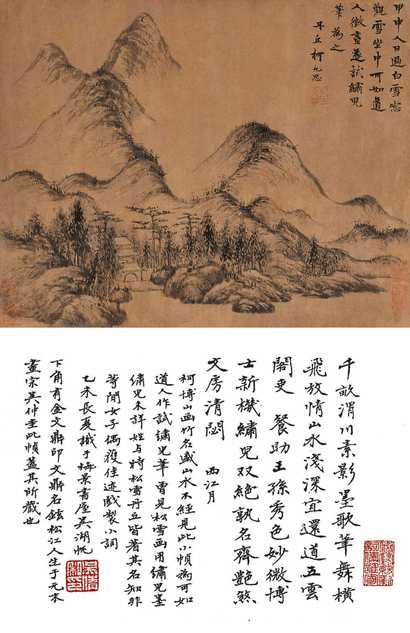 甲申人日過白雪窗
觀雪坐中可如道
人徵畫遂試繡兒
筆為之
丹丘柯九思
千畝渭川素影墨歌筆舞橫
飛放情山水淺深宜還道五雲
閣吏 餐助王孫秀色妙徵博
士新機繡兒双絕孰名齊艷煞
文房清閟 西江月
柯博山画竹名盛山水不經見此小幀為可如
道人作試繡兒筆曾見松雪画用繡兒墨
繡兒未詳姓与時松雪丹丘皆著其名知非
等閒女子偶獲佳迹戲製小詞
乙未長夏識于梅景書屋吳湖帆
下角有金文鼎印文鼎名鉉松江人生于元末
畫宗吳仲圭此幀蓋其所藏也